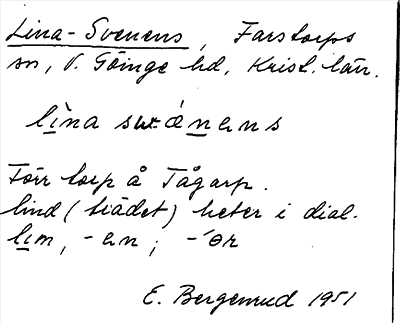 Lina-Svenens, Farstorps
sn, V. Göinge hd, Krist. län.
lìna nens
Förr torp å Tågarp.
lind (trädet) heter i dial.
lim, -en; -ər
E. Bergenrud 1951